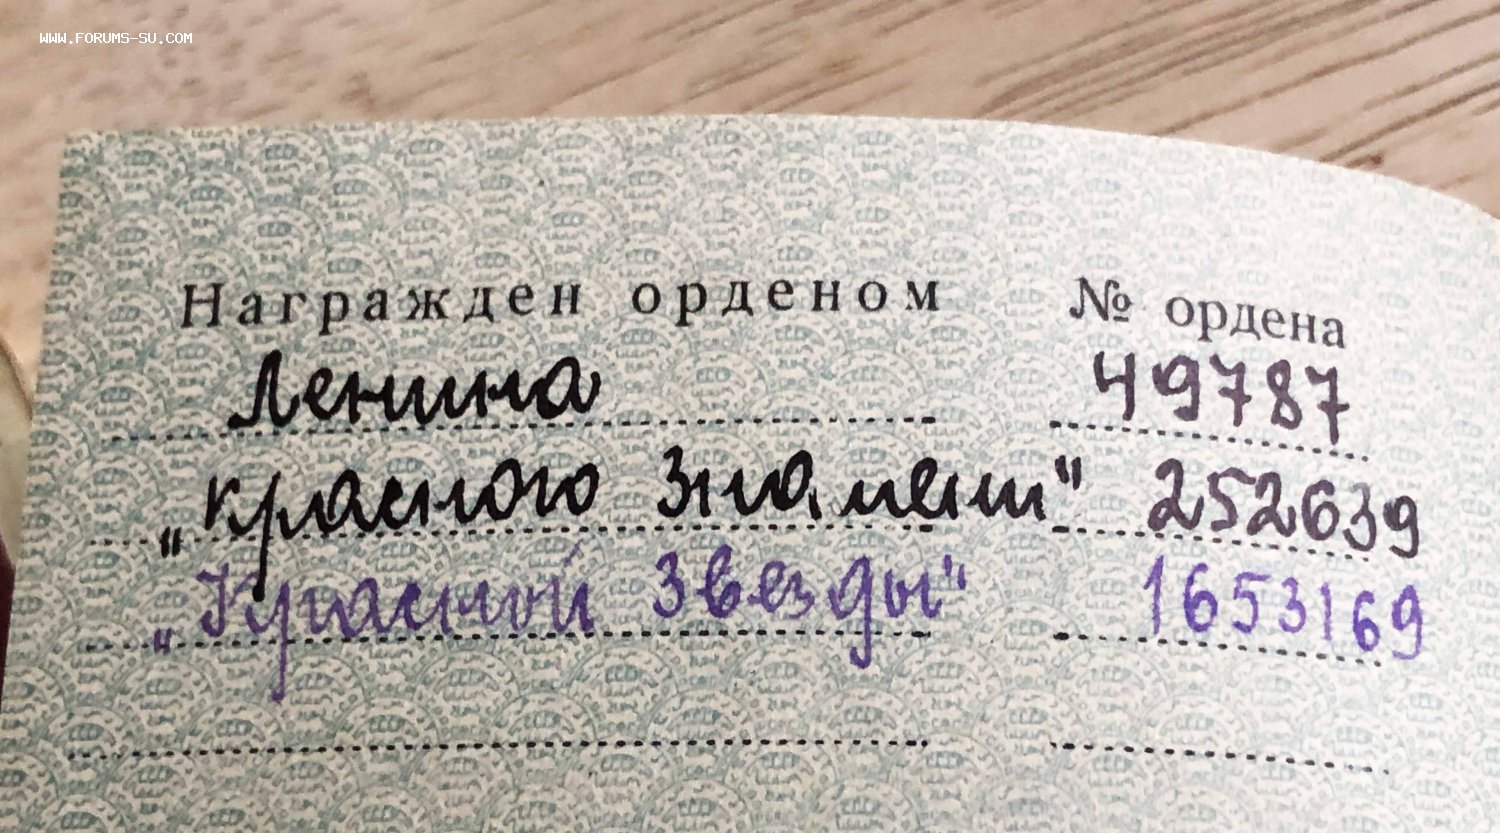 WWW.FORUMS-SU.COM
Награжден орденом № ордена
Ленина 49787
„Красного Знамени" 252639
„Красной Звезды" 1653169